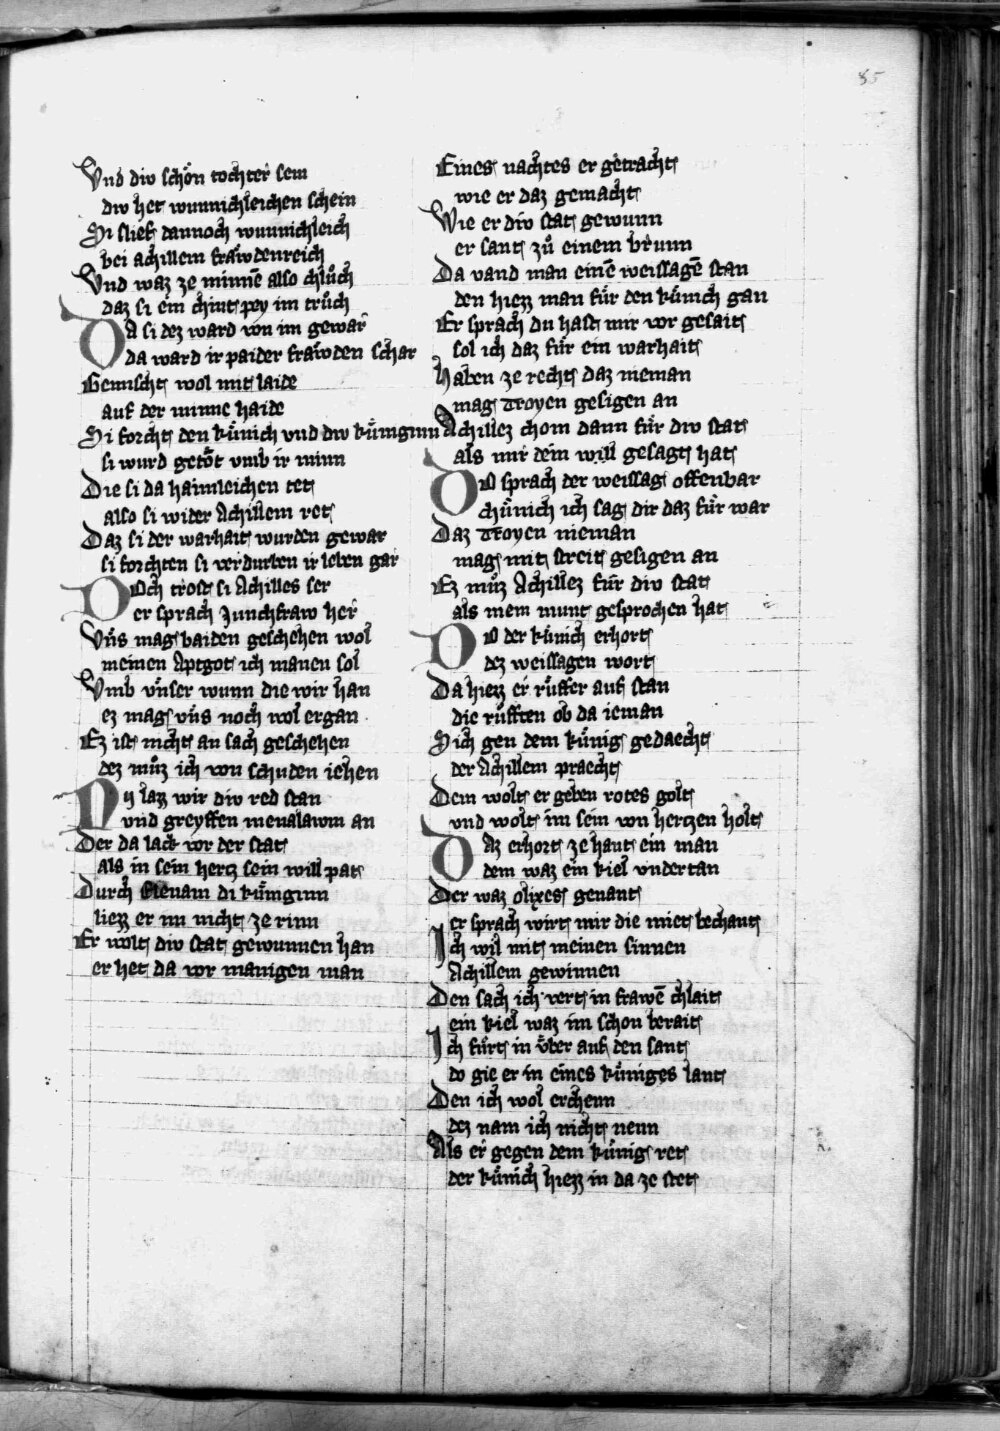 85
Vnd div schön tochter sein
div het wunnichleichen schein
Si slief dannoch wunnichleich
bei achillem fräwdenreich
Vnd waz ze minnē also chlůch
daz si ein chint pey im trůch
Da si dez ward von im gewar
da ward ir paider fräwden schar
Gemischt wol mit laide
auf der minne haide
Si forcht den künich vnd div künginn
si wurd getöt vmb ir minn
Die si da haimleichen tet
also si wider Achillem ret
Daz si der warhait wurden gewar
si forchten si verdurben ir leben gar
Doch tröst si Achilles ser
er sprach Junchfraw her
Vns mag baiden geschehen wol
meinen Aptgot ich manen sol
Vmb vnser wunn die wir han
ez mag vns noch wol ergan
Ez ist nicht an sach geschehen
dez můz ich von schuden iehen
Nv lazz wir div red stan
vnd greyffen menalawm an
Der da lack vor der stat
als in sein hertz sein will pat
Durch Elenam di künginn
liezz er im nicht ze rinn
Er wolt div stat gewunnen han
er het da vor manigen man
Eines nachtes er getracht
wie er daz gemacht
Wie er div stat gewunn
er sant zů einem brunn
Da vand man einē weissagē stan
den hiezz man für den künich gan
Er sprach du hast mir vor gesait
sol ich daz für ein warhait
Haben ze recht daz nieman
mag Troyen gesigen an
Achillez chom dann für div stat
als mir dein will gesagt hat
Do sprach der weissag offenbar
chünich ich sag dir daz für war
Daz Troyen nieman
mag mit streit gesigen an
Ez můz Achillez für div stat
als mein munt gesprochen hat
Do der künich erhort
dez weissagen wort
Da hiezz er rüffer auf stan
die rüfften ob da ieman
Sich gen dem künig gedaecht
der Achillem praecht
Dem wolt er geben rotes golt
vnd wolt im sein von hertzen holt
Daz erhort ze hant ein man
dem waz ein kiel vndertan
Der waz olixes genant
er sprach wirt mir die miet bechant
Ich wil mit meinen sinnen
Achillem gewinnen
Den sach ich vert in frawē chlait
ein kiel waz im schon berait
Ich fürt in über auf den sant
do gie er in eines küniges lant
Den ich wol erchenn
dez nam ich nicht nenn
Als er gegen dem künig ret
der künich hiezz in da ze stet